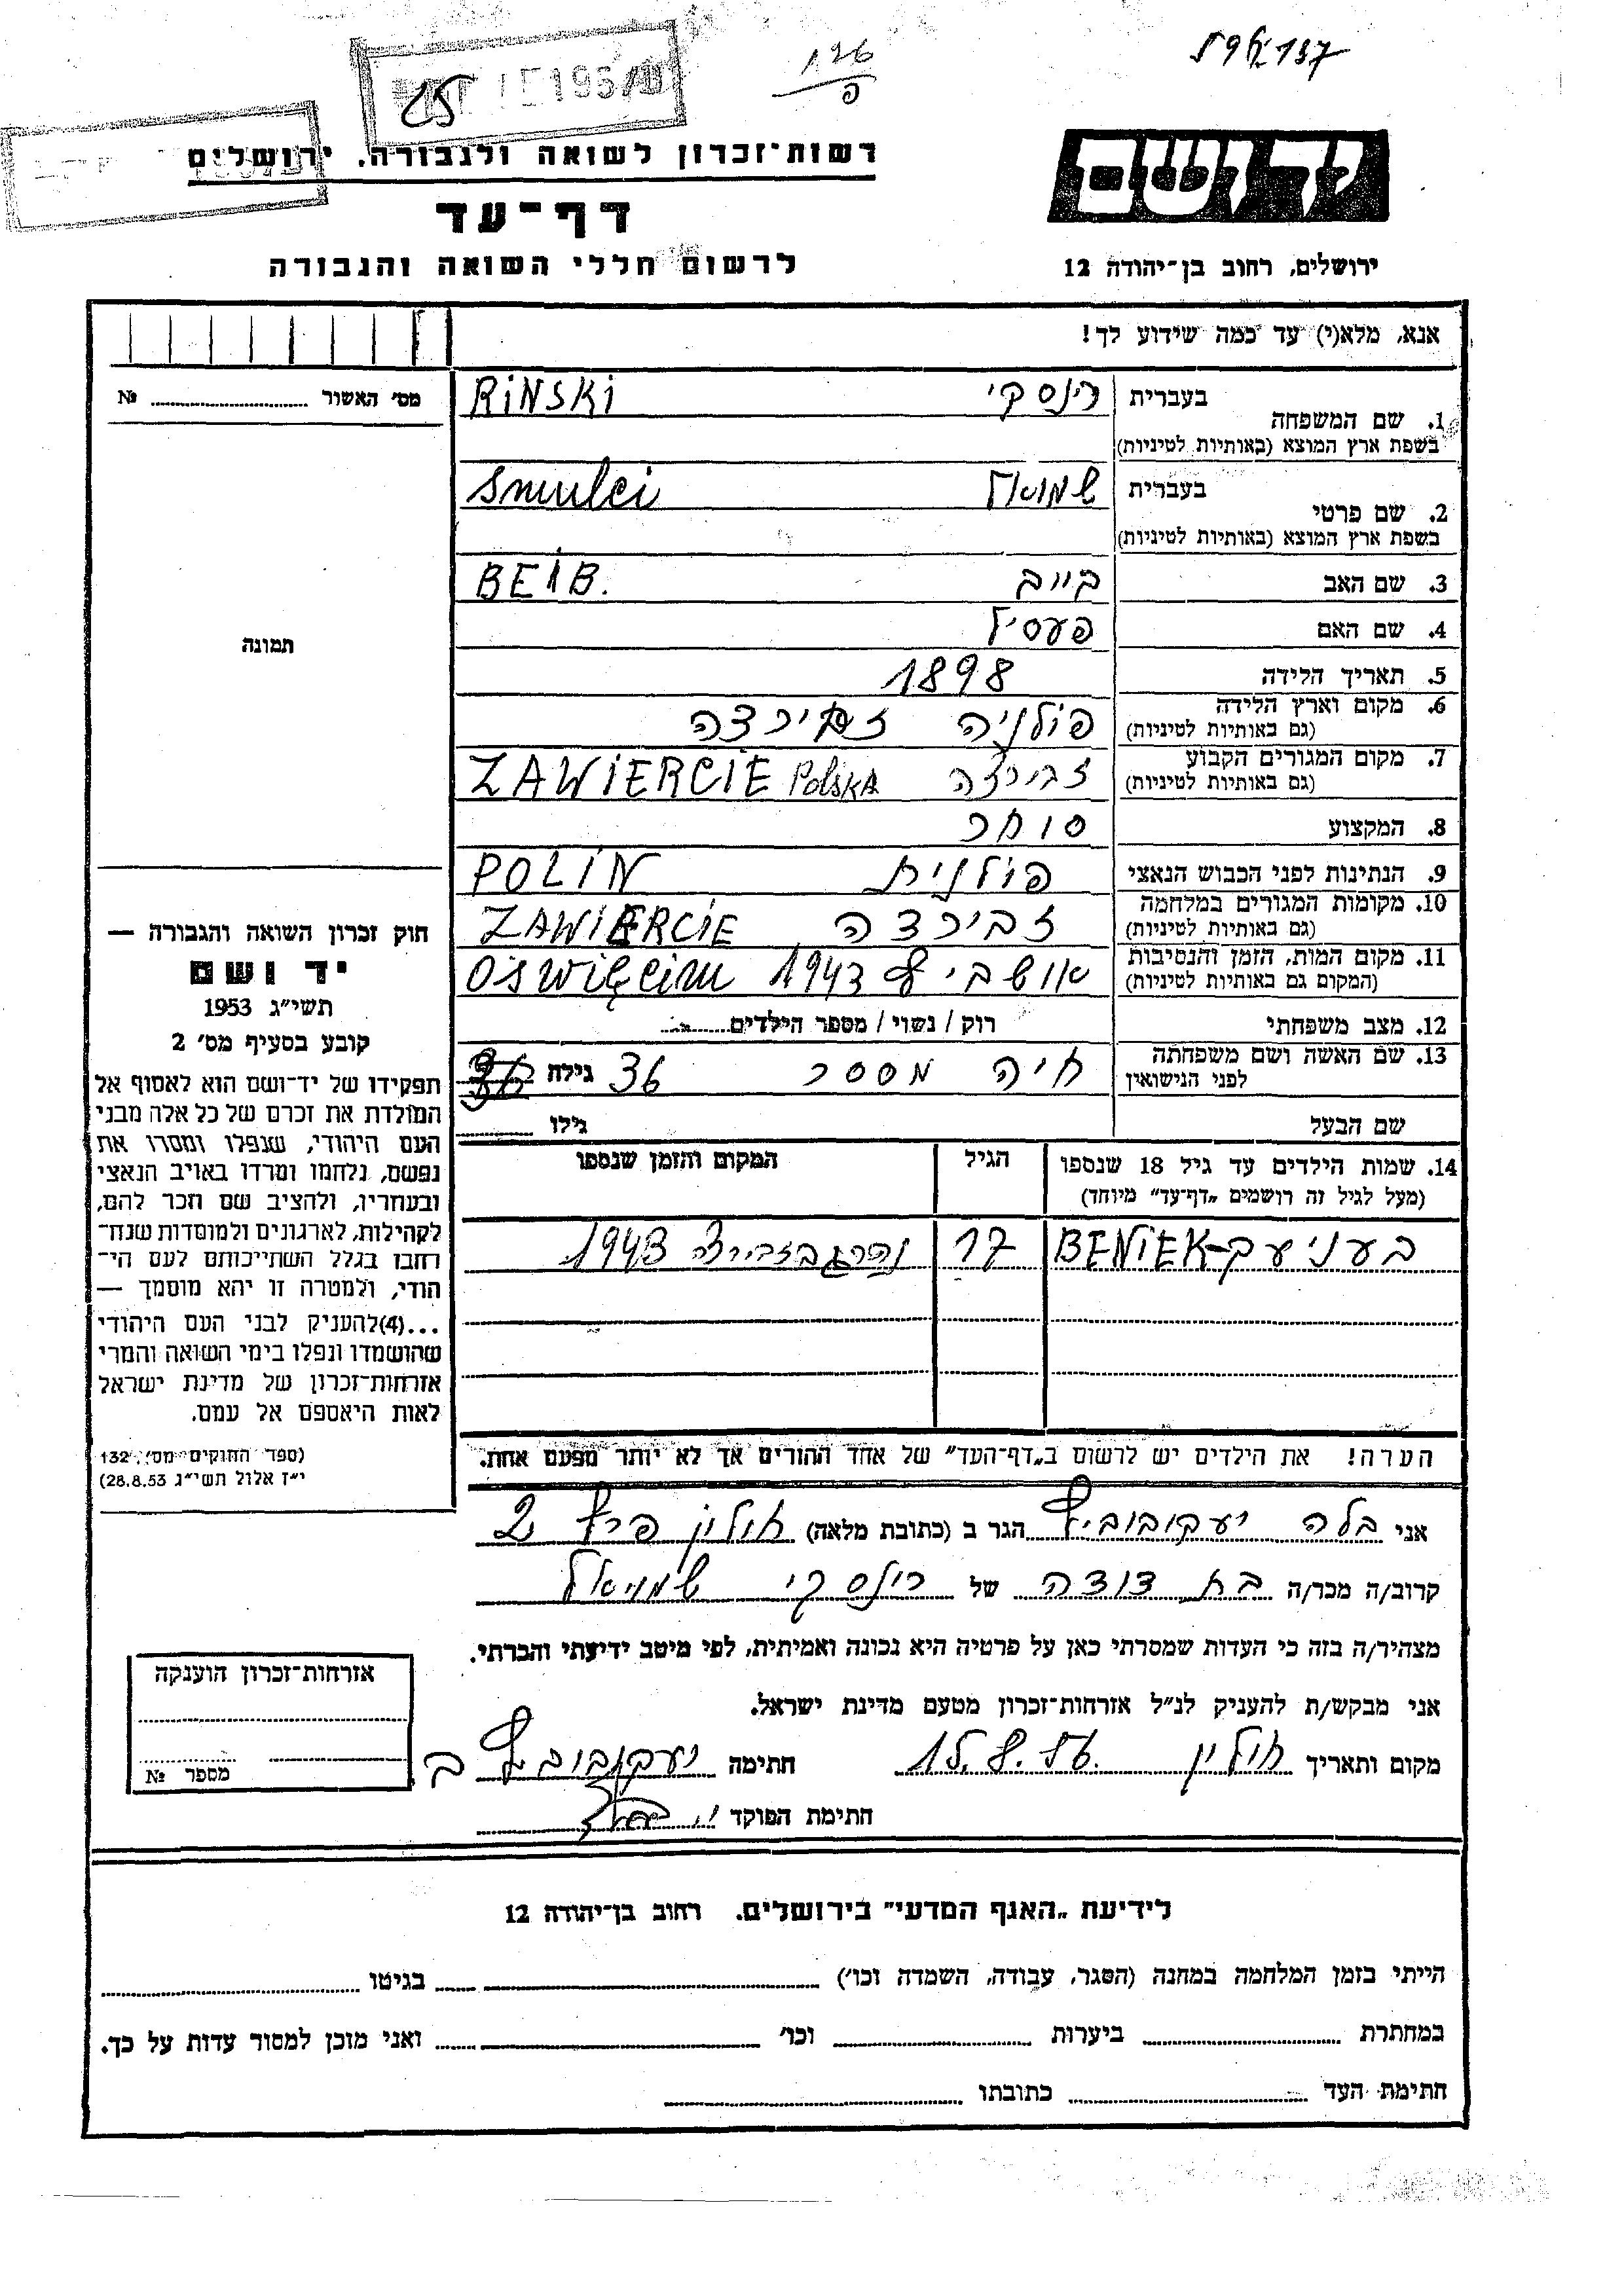 126
פ
רשות־זכרון לשואה ולגבורה. ירושלים
דף־עד
לרשום חללי השואה והגבורה
יד ושם
ירושלים, רחוב בן־יהודה 12
אנא, מלא(י) עד כמה שידוע לך!
מס׳ האשור ........ №
תמונה
חוק זכרון השואה והגבורה —
יד ושם
תשי״ג 1953
קובע בסעיף מס׳ 2
תפקידו של יד־ושם הוא לאסוף אל
המולדת את זכרם של כל אלה מבני
העם היהודי, שנפלו ומסרו את
נפשם, נלחמו ומרדו באויב הנאצי
ובעוזריו, ולהציב שם וזכר להם,
לקהילות, לארגונים ולמוסדות שנח־
רבו בגלל השתייכותם לעם הי־
הודי, ולמטרה זו יהא מוסמך —
...(4)להעניק לבני העם היהודי
שהושמדו ונפלו בימי השואה והמרי
אזרחות־זכרון של מדינת ישראל
לאות היאספם אל עמם.
(ספר החוקים מס׳ 132,
י״ז אלול תשי״ג 28.8.53)
1. שם המשפחה בעברית רינסקי RiNSKi
בשפת ארץ המוצא (באותיות לטיניות)
2. שם פרטי בעברית שמואל Smulei
בשפת ארץ המוצא (באותיות לטיניות)
3. שם האב בייב BEiB.
4. שם האם פעסיל
5. תאריך הלידה 1898
6. מקום וארץ הלידה פולניה
(גם באותיות לטיניות)
7. מקום המגורים הקבוע זבירצה ZAWiERCiE POLSKA
(גם באותיות לטיניות)
8. המקצוע סוחר
9. הנתינות לפני הכבוש הנאצי פולנית POLiN
10. מקומות המגורים במלחמה זבירצה ZAWiERCiE
(גם באותיות לטיניות)
11. מקום המות, הזמן והנסיבות אושביץ 1943 Oświęcim
(המקום גם באותיות לטיניות)
12. מצב משפחתי רוק / נשוי / מספר הילדים........
13. שם האשה ושם משפחתה לפני הנישואין חיה מססר 36 גילה
שם הבעל גילו ........
14. שמות הילדים עד גיל 18 שנספו הגיל המקום והזמן שנספו
(מעל לגיל זה רושמים „דף־עד״ מיוחד)
בעניעק-BENiEK 17 נהרג בזבירצה 1943
הערה! את הילדים יש לרשום ב„דף־העד״ של אחד ההורים אך לא יותר מפעם אחת.
אני בלה יעקובוביץ הגר ב (כתובת מלאה) חולון פרץ 2
קרוב/ה מכר/ה בת דודה של רינסקי שמואל
מצהיר/ה בזה כי העדות שמסרתי כאן על פרטיה היא נכונה ואמיתית, לפי מיטב ידיעתי והכרתי.
אני מבקש/ת להעניק לנ״ל אזרחות־זכרון מטעם מדינת ישראל.
מקום ותאריך חולון 15.8.56. חתימה יעקובוביץ ב
חתימת הפוקד
אזרחות־זכרון הוענקה
מספר №
לידיעת „האגף המדעי״ בירושלים. רחוב בן־יהודה 12
הייתי בזמן המלחמה במחנה (הסגר, עבודה, השמדה וכו׳) ........ בגיטו ........
במחתרת ........ ביערות ........ וכו׳ ........ ואני מוכן למסור עדות על כך.
חתימת העד ........ כתובתו ........